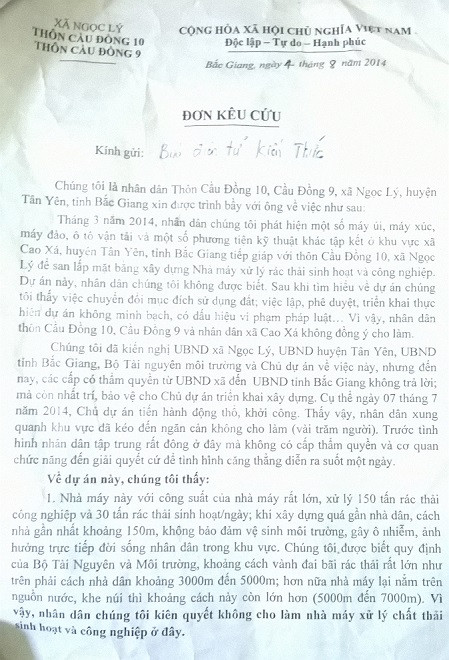 XÃ NGỌC LÝ
THÔN CẦU ĐỒNG 10
THÔN CẦU ĐỒNG 9
CỘNG HÒA XÃ HỘI CHỦ NGHĨA VIỆT NAM
Độc lập – Tự do – Hạnh phúc
Bắc Giang, ngày 4 tháng 8 năm 2014
ĐƠN KÊU CỨU
Kính gửi: Báo điện tử Kiến Thức
Chúng tôi là nhân dân Thôn Cầu Đồng 10, Cầu Đồng 9, xã Ngọc Lý, huyện
Tân Yên, tỉnh Bắc Giang xin được trình bầy với ông về việc như sau:
Tháng 3 năm 2014, nhân dân chúng tôi phát hiện một số máy úi, máy xúc,
máy đào, ô tô vận tải và một số phương tiện kỹ thuật khác tập kết ở khu vực xã
Cao Xá, huyện Tân Yên, tỉnh Bắc Giang tiếp giáp với thôn Cầu Đồng 10, xã Ngọc
Lý để san lấp mặt bằng xây dựng Nhà máy xử lý rác thải sinh hoạt và công nghiệp.
Dự án này, nhân dân chúng tôi không được biết. Sau khi tìm hiểu về dự án chúng
tôi thấy việc chuyển đổi mục đích sử dụng đất; việc lập, phê duyệt, triển khai thực
hiện dự án không minh bạch, có dấu hiệu vi phạm pháp luật... Vì vậy, nhân dân
thôn Cầu Đồng 10, Cầu Đồng 9 và nhân dân xã Cao Xá không đồng ý cho làm.
Chúng tôi đã kiến nghị UBND xã Ngọc Lý, UBND huyện Tân Yên, UBND
tỉnh Bắc Giang, Bộ Tài nguyên môi trường và Chủ dự án về việc này, nhưng đến
nay, các cấp có thẩm quyền từ UBND xã đến UBND tỉnh Bắc Giang không trả lời;
mà còn nhất trí, bảo vệ cho Chủ dự án triển khai xây dựng. Cụ thể ngày 07 tháng 7
năm 2014, Chủ dự án tiến hành động thổ, khởi công. Thấy vậy, nhân dân xung
quanh khu vực đã kéo đến ngăn cản không cho làm (vài trăm người). Trước tình
hình nhân dân tập trung rất đông ở đây mà không có cấp thẩm quyền và cơ quan
chức năng đến giải quyết cứ để tình hình căng thẳng diễn ra suốt một ngày.
Về dự án này, chúng tôi thấy:
1. Nhà máy này với công suất của nhà máy rất lớn, xử lý 150 tấn rác thải
công nghiệp và 30 tấn rác thải sinh hoạt/ngày; khi xây dựng quá gần nhà dân, cách
nhà gần nhất khoảng 150m, không bảo đảm vệ sinh môi trường, gây ô nhiễm, ảnh
hưởng trực tiếp đời sống nhân dân trong khu vực. Chúng tôi được biết quy định
của Bộ Tài Nguyên và Môi trường, khoảng cách vành đai bãi rác thải rất lớn như
trên phải cách nhà dân khoảng 3000m đến 5000m; hơn nữa nhà máy lại nằm trên
nguồn nước, khe núi thì khoảng cách này còn lớn hơn (5000m đến 7000m). Vì
vậy, nhân dân chúng tôi kiên quyết không cho làm nhà máy xử lý chất thải
sinh hoạt và công nghiệp ở đây.